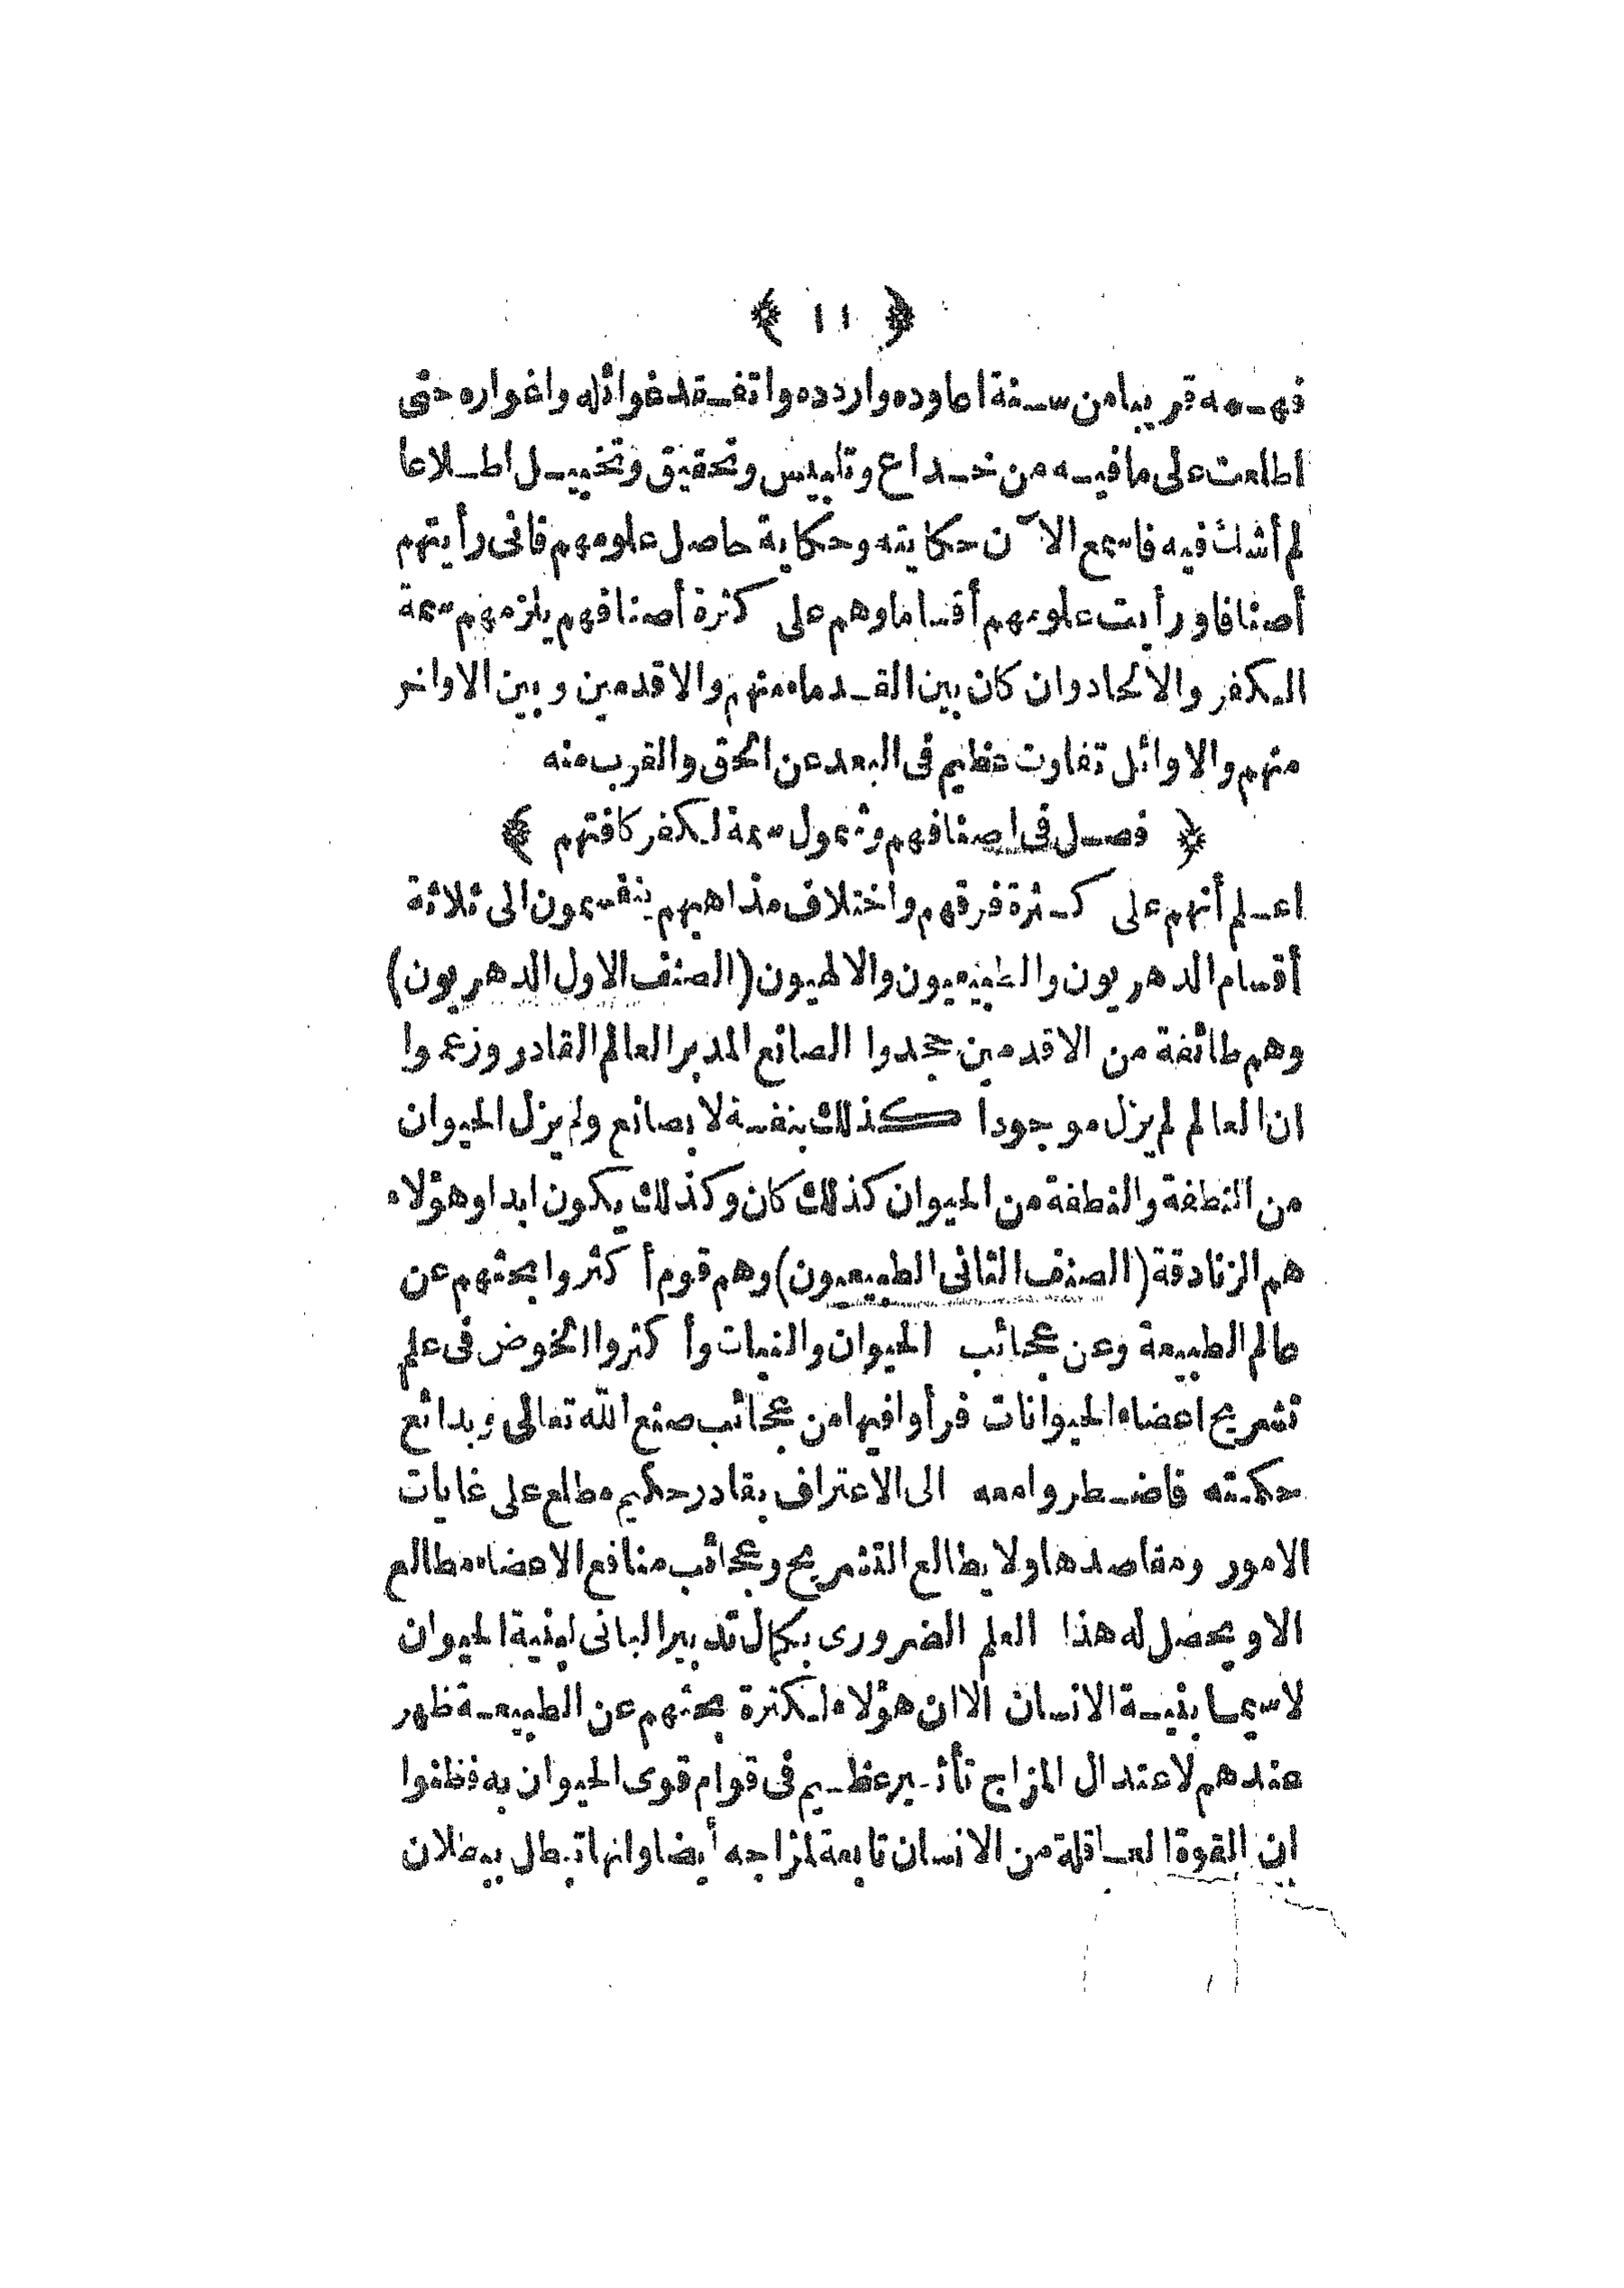 ﴿ ١١ ﴾
فهمه قريبا من سنة اعاوده وارددہ واتفقد غوائله واغواره حتى
اطلعت على ما فيه من خداع وتلبيس وتحقيق وتخييل اطلاعا
لم أشك فيه فاسمع الآن حكايته وحكاية حاصل علومهم فانى رأيتهم
أصنافا ورأيت علومهم أقساما وهم على كثرة أصنافهم يلزمهم سمة
الكفر والالحاد وان كان بين القدماء منهم والاقدمين وبين الاواخر
منهم والاوائل تفاوت عظيم فى البعد عن الحق والقرب منه
﴿ فصل فى اصنافهم وشمول سمة الكفر كافتهم ﴾
اعلم أنهم على كثرة فرقهم واختلاف مذاهبهم ينقسمون الى ثلاثة
أقسام الدهريون والطبيعيون والالهيون (الصنف الاول الدهريون)
وهم طائفة من الاقدمين جحدوا الصانع المدبر العالم القادر وزعموا
ان العالم لم يزل موجودا كذلك بنفسه لا بصانع ولم يزل الحيوان
من النطفة والنطفة من الحيوان كذلك كان وكذلك يكون ابدا وهؤلاء
هم الزنادقة (الصنف الثانى الطبيعيون) وهم قوم أكثروا بحثهم عن
عالم الطبيعة وعن عجائب الحيوان والنبات وأكثروا الخوض فى علم
تشريح اعضاء الحيوانات فرأوا فيها من عجائب صنع الله تعالى وبدائع
حكمته فاضطروا معه الى الاعتراف بقادر حكيم مطلع على غايات
الامور ومقاصدها ولا يطالع التشريح وعجائب منافع الاعضاء مطالع
الا ويحصل له هذا العلم الضرورى بكمال تدبير البانى لبنية الحيوان
لاسيما بنية الانسان الا ان هؤلاء لكثرة بحثهم عن الطبيعة ظهر
عندهم لاعتدال المزاج تأثير عظيم فى قوام قوى الحيوان به فظنوا
ان القوة العاقلة من الانسان تابعة لمزاجه أيضا وانها تبطل ببطلان